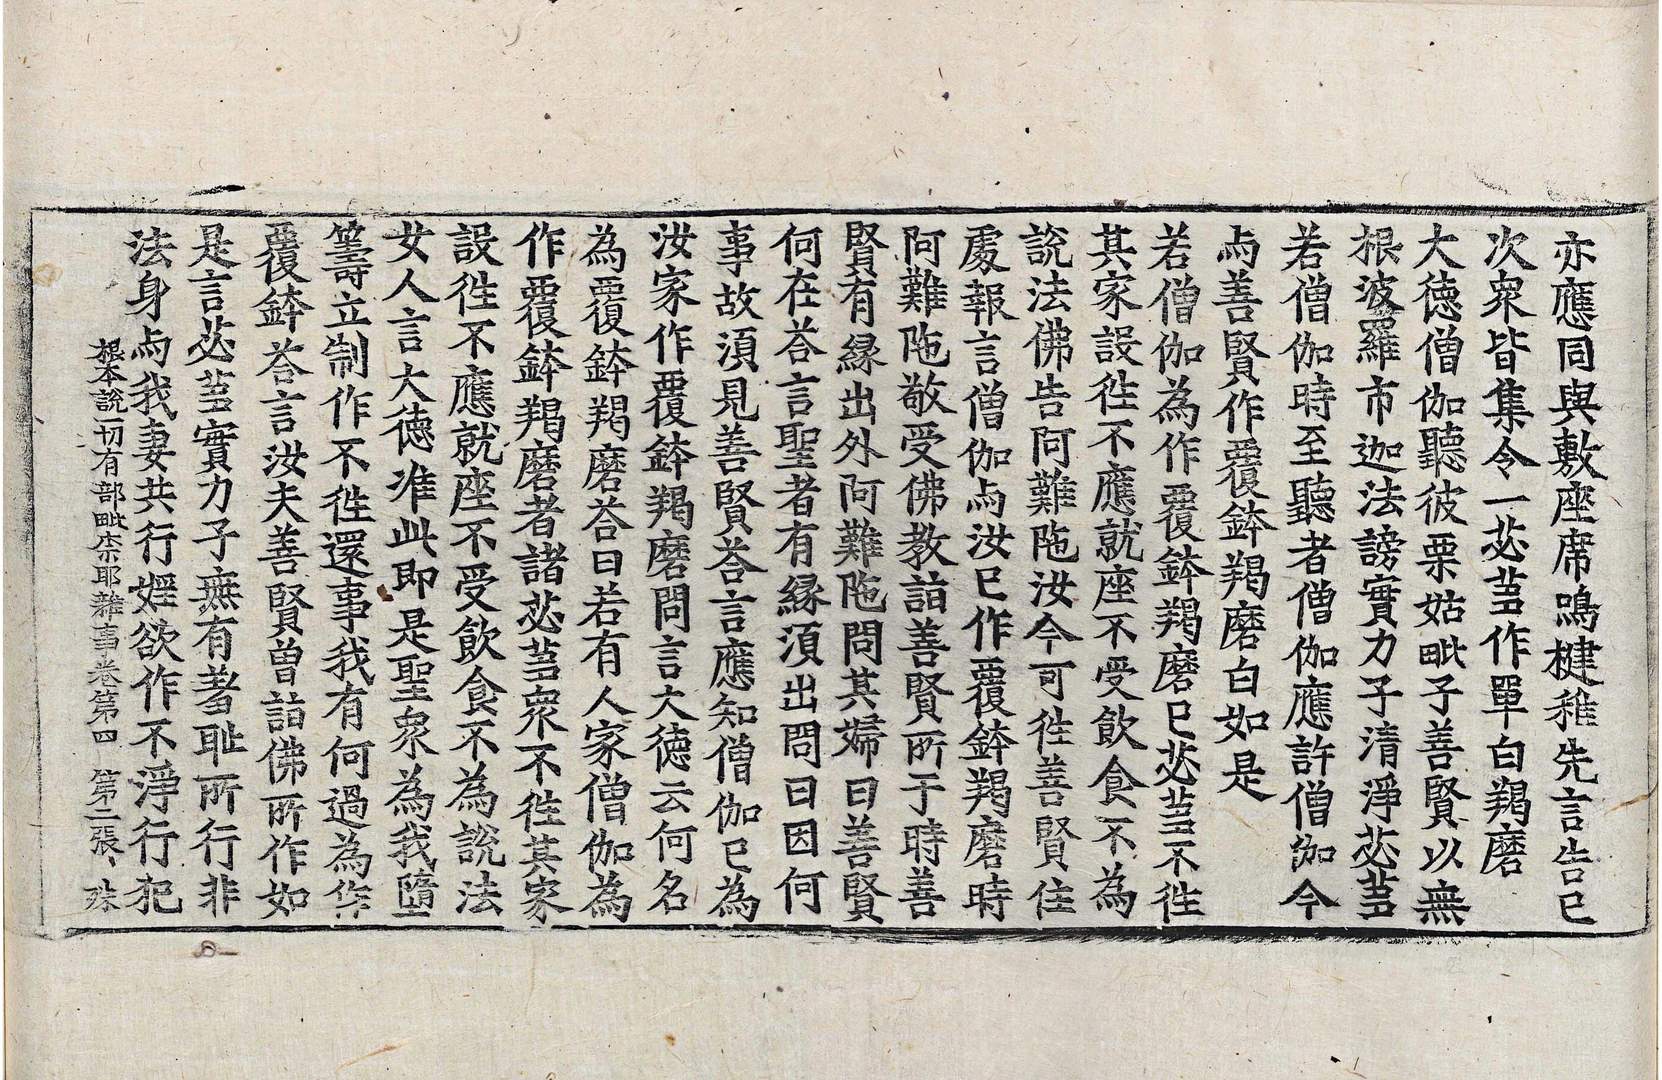 亦應同與敷座席鳴揵稚先言告已
次衆皆集令一苾芻作單白羯磨
大德僧伽聽彼栗姑毗子善賢以無
根波羅市迦法謗實力子清淨苾芻
若僧伽時至聽者僧伽應許僧伽今
与善賢作覆鉢羯磨白如是
若僧伽為作覆鉢羯磨已苾芻不徃
其家設徃不應就座不受飲食不為
說法佛告阿難陁汝今可徃善賢住
處報言僧伽与汝已作覆鉢羯磨時
阿難陁敬受佛教詣善賢所于時善
賢有緣出外阿難陁問其婦曰善賢
何在荅言聖者有緣須出問曰因何
事故須見善賢荅言應知僧伽已為
汝家作覆鉢羯磨問言大德云何名
為覆鉢羯磨荅曰若有人家僧伽為
作覆鉢羯磨者諸苾芻衆不徃其家
設徃不應就座不受飲食不為說法
女人言大德准此即是聖衆為我隨
籌立制作不徃還事我有何過為作
覆鉢荅言汝夫善賢曽詣佛所作如
是言苾芻實力子無有羞耻所行非
法身与我妻共行婬欲作不淨行犯
根本說一切有部毗奈耶雜事卷第四　第二張　殊